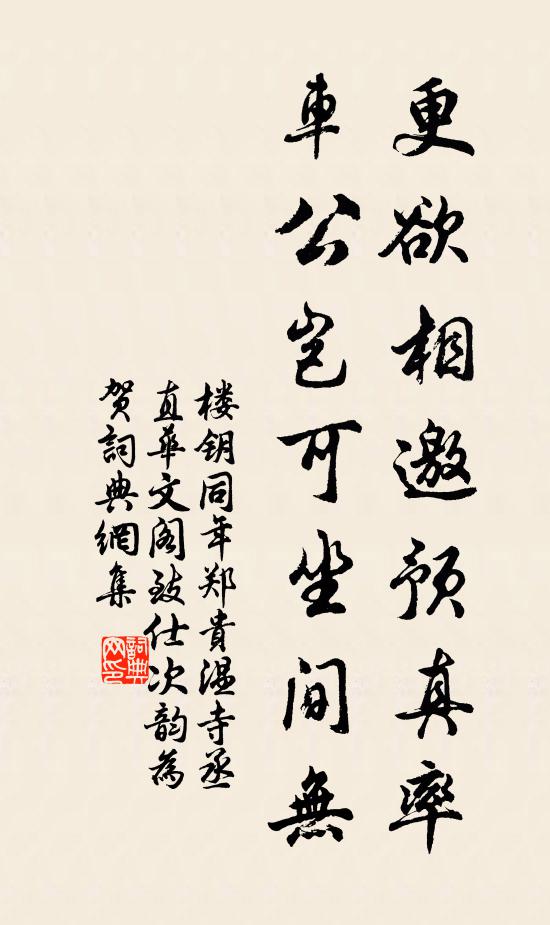 更欲相邀预真率
車公岂可坐间無
楼钥同年郑貴温寺丞
直華文阁致仕次韵為
贺詞典網集
詞典
网印